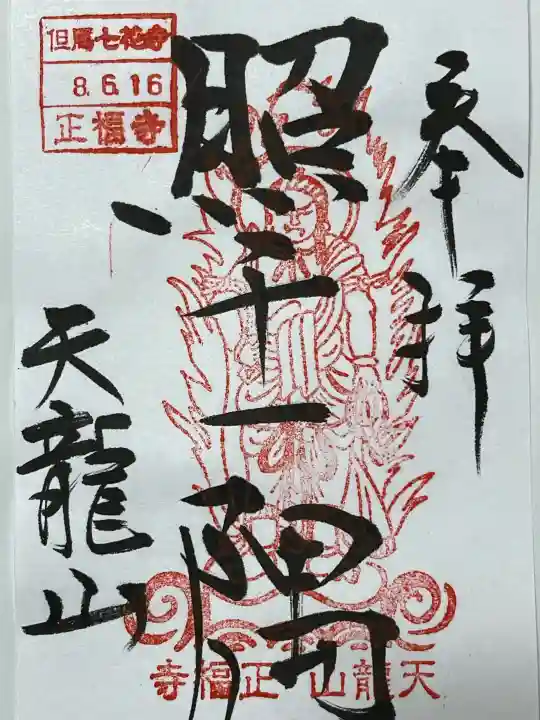 奉拝
照千一隅
天龍山
但馬七花寺
8.6.16
正福寺
天龍山正福寺